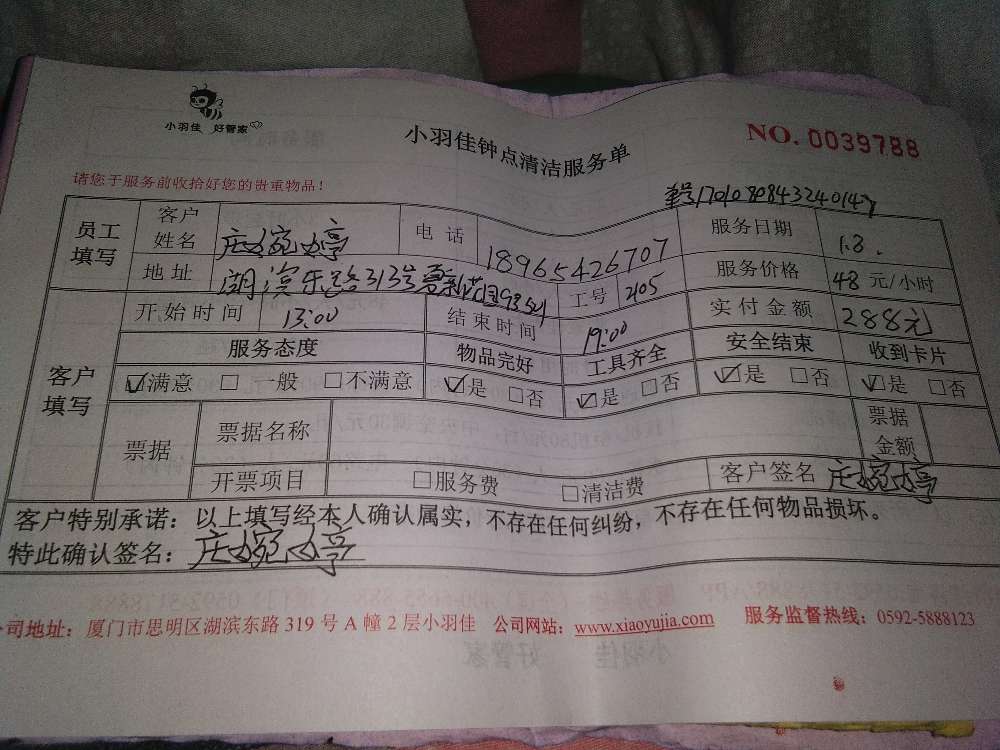 小羽佳 好管家
小羽佳钟点清洁服务单
NO. 0039788
请您于服务前收拾好您的贵重物品！
员工填写 客户姓名 庄婉婷 电话 18965426707 服务日期 1.3.
地址 湖滨东路313号 工号 2105 服务价格 48 元/小时
客户填写 开始时间 13:00 结束时间 19:00 实付金额 288元
服务态度 物品完好 工具齐全 安全结束 收到卡片
☑满意 □一般 □不满意 ☑是 □否 ☑是 □否 ☑是 □否 ☑是 □否
票据 票据名称 票据金额
开票项目 □服务费 □清洁费 客户签名 庄婉婷
客户特别承诺：以上填写经本人确认属实，不存在任何纠纷，不存在任何物品损坏。
特此确认签名：庄婉婷
司地址：厦门市思明区湖滨东路 319 号 A 幢 2 层小羽佳 公司网站：www.xiaoyujia.com 服务监督热线：0592-5888123